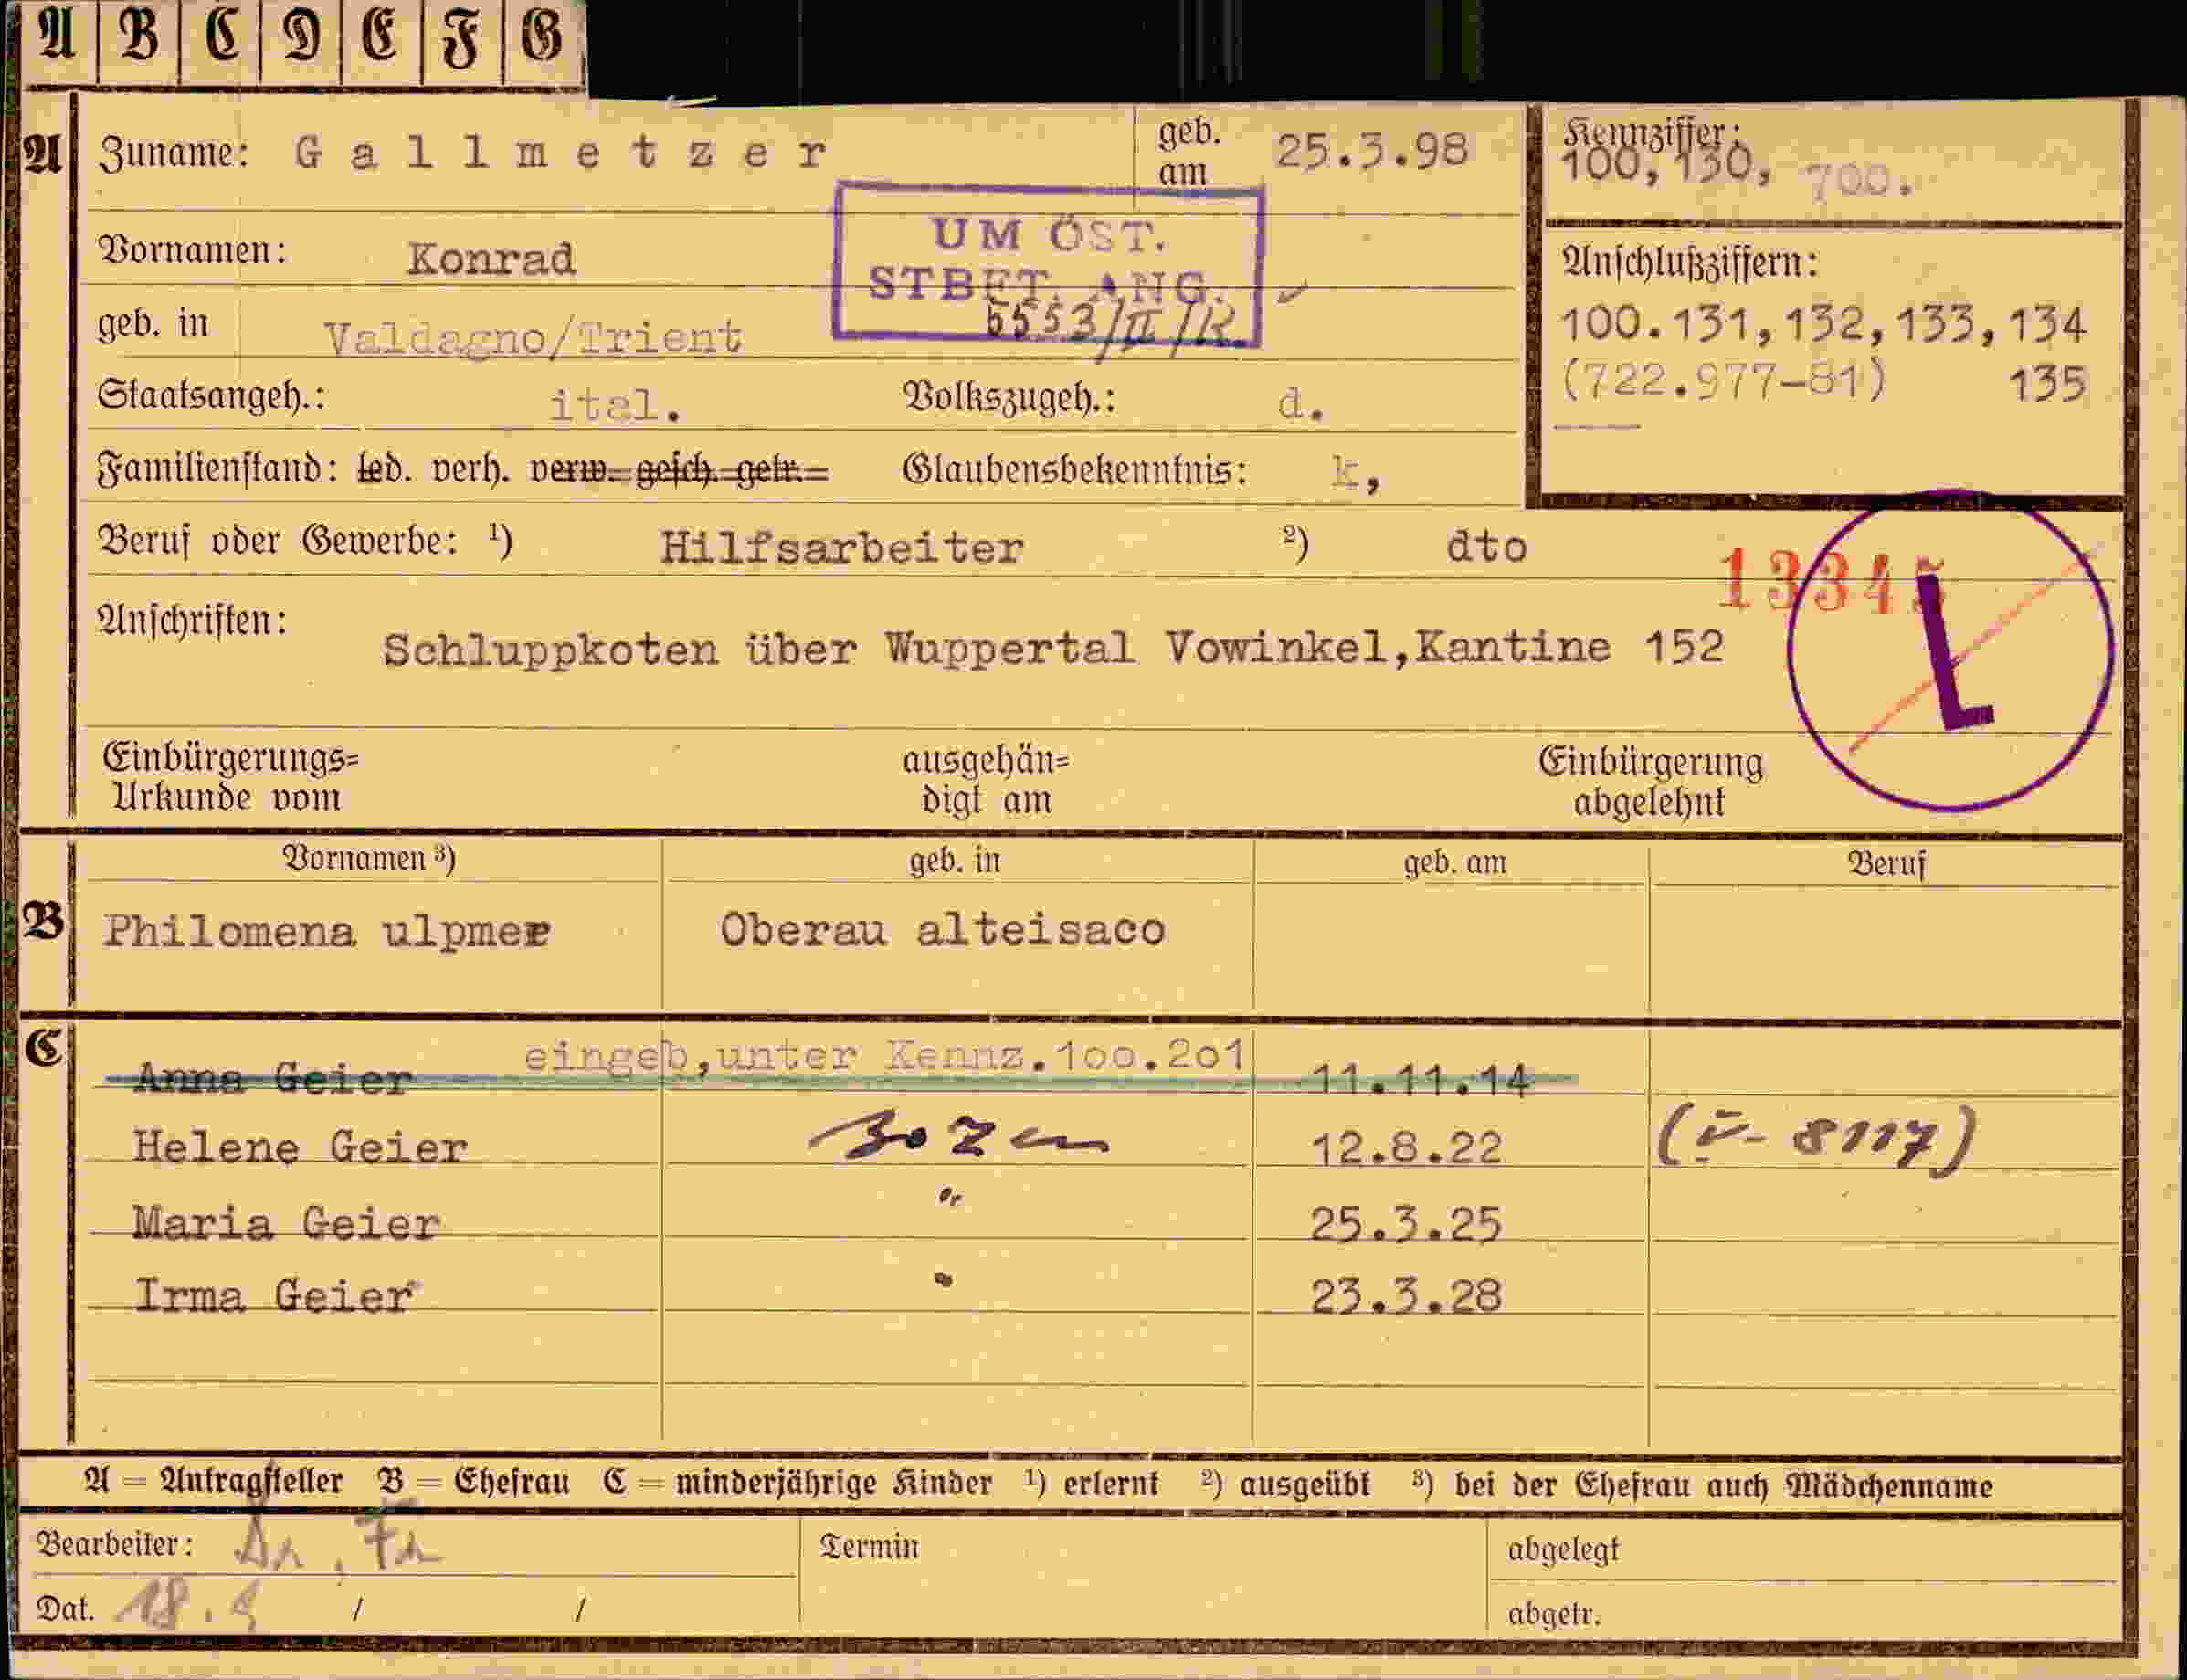 A B C D E F G
A Zuname: Gallmetzer geb. am 25.3.98
Kennziffer:
100,130, 700.
UM ÖST.
STBET. ANG.
5553/II/R.
Vornamen: Konrad
Anschlußziffern:
geb. in Valdagno/Trient
100.131,132,133,134
(722.977-81) 135
Staatsangeh.: ital. Volkszugeh.: d.
Familienstand: led. verh. verw. gesch. getr. Glaubensbekenntnis: k,
Beruf oder Gewerbe: ¹) Hilfsarbeiter ²) dto
13345
L
Anschriften:
Schluppkoten über Wuppertal Vowinkel,Kantine 152
Einbürgerungs=
Urkunde vom
ausgehän=
digt am
Einbürgerung
abgelehnt
Vornamen ³) geb. in geb. am Beruf
B Philomena ulpmer Oberau alteisaco
C eingeb,unter Kennz.100.201
Anna Geier 11.11.14
Helene Geier Bozen 12.8.22 8117)
Maria Geier " 25.3.25
Irma Geier " 23.3.28
A = Antragsteller B = Ehefrau C = minderjährige Kinder ¹) erlernt ²) ausgeübt ³) bei der Ehefrau auch Mädchenname
Bearbeiter: Termin abgelegt
Dat. 18. / / abgetr.